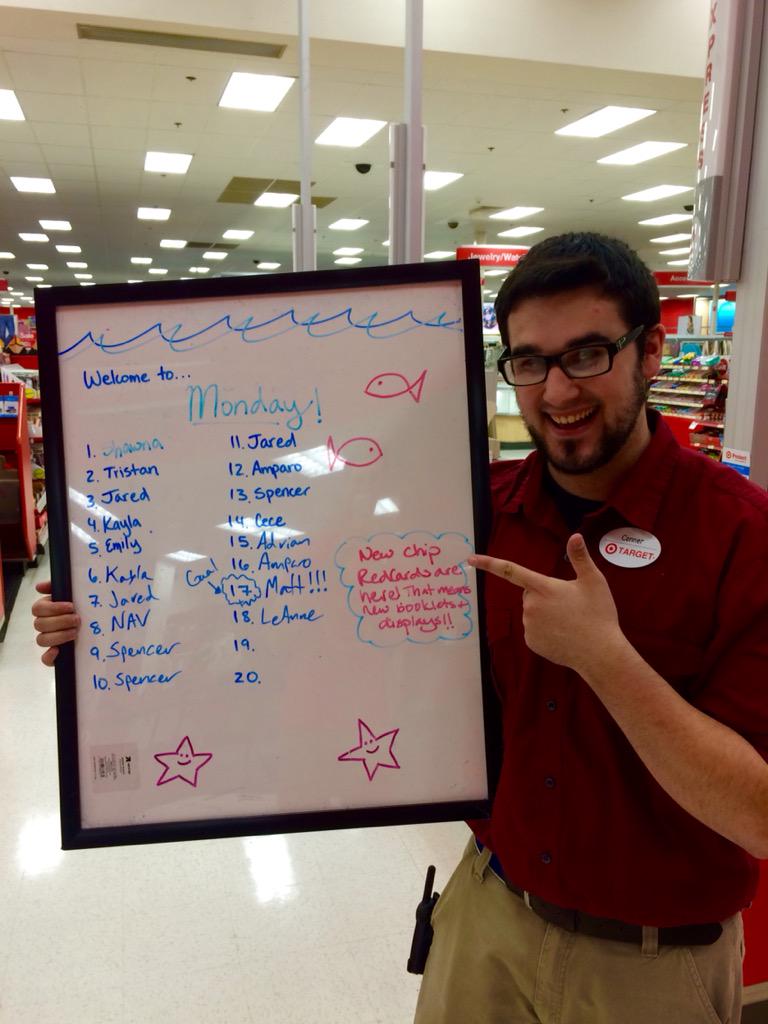 XPRESS
Jewelry/Wat
Welcome to...
Monday!
1. Shawna
2. Tristan
3. Jared
4. Kayla
5. Emily
6. Kayla
7. Jared
8. NAV
9. Spencer
10. Spencer
11. Jared
12. Amparo
13. Spencer
14. Cece
15. Adrian
16. Amparo
Goal
17. Matt!!!
18. LeAnne
19.
20.
New chip
Redcards are
here! That means
new booklets +
displays!!
Conner
TARGET